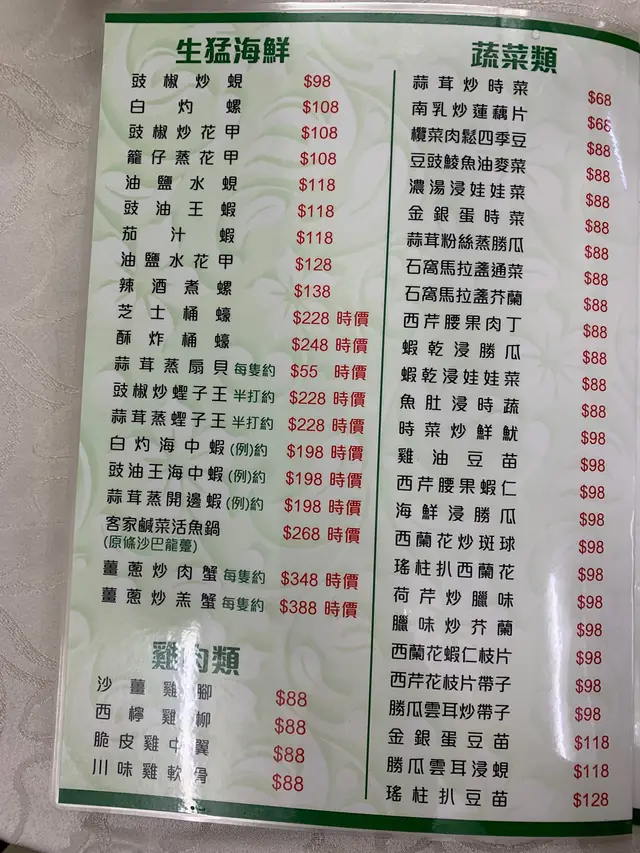 生猛海鮮
豉椒炒蜆 $98
白灼螺 $108
豉椒炒花甲 $108
籠仔蒸花甲 $108
油鹽水蜆 $118
豉油王蝦 $118
茄汁蝦 $118
油鹽水花甲 $128
辣酒煮螺 $138
芝士桶蠔 $228 時價
酥炸桶蠔 $248 時價
蒜茸蒸扇貝 每隻約 $55 時價
豉椒炒蟶子王 半打約 $228 時價
蒜茸蒸蟶子王 半打約 $228 時價
白灼海中蝦 (例)約 $198 時價
豉油王海中蝦 (例)約 $198 時價
蒜茸蒸開邊蝦 (例)約 $198 時價
客家鹹菜活魚鍋 $268 時價
(原條沙巴龍躉)
薑蔥炒肉蟹 每隻約 $348 時價
薑蔥炒羔蟹 每隻約 $388 時價
雞肉類
沙薑雞腳 $88
西檸雞柳 $88
脆皮雞中翼 $88
川味雞軟骨 $88
蔬菜類
蒜茸炒時菜 $68
南乳炒蓮藕片 $68
欖菜肉鬆四季豆 $88
豆豉鯪魚油麥菜 $88
濃湯浸娃娃菜 $88
金銀蛋時菜 $88
蒜茸粉絲蒸勝瓜 $88
石窩馬拉盞通菜 $88
石窩馬拉盞芥蘭 $88
西芹腰果肉丁 $88
蝦乾浸勝瓜 $88
蝦乾浸娃娃菜 $88
魚肚浸時蔬 $88
時菜炒鮮魷 $98
雞油豆苗 $98
西芹腰果蝦仁 $98
海鮮浸勝瓜 $98
西蘭花炒斑球 $98
瑤柱扒西蘭花 $98
荷芹炒臘味 $98
臘味炒芥蘭 $98
西蘭花蝦仁枝片 $98
西芹花枝片帶子 $98
勝瓜雲耳炒帶子 $98
金銀蛋豆苗 $118
勝瓜雲耳浸蜆 $118
瑤柱扒豆苗 $128